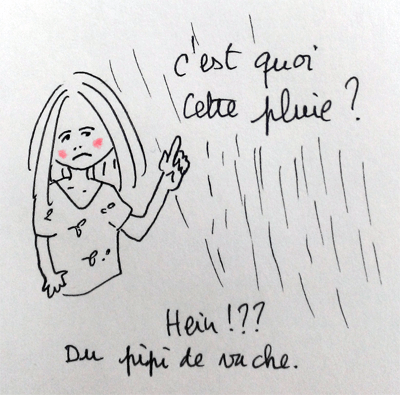 c'est quoi
cette pluie ?
Hein !??
Du pipi de vache.